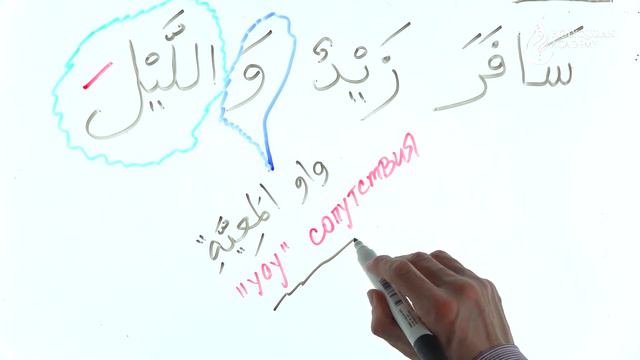 سَافَرَ زَيْدٌ وَ اللَّيْلَ
وَاو المَعِيَّةِ"
"уау" сопутствия